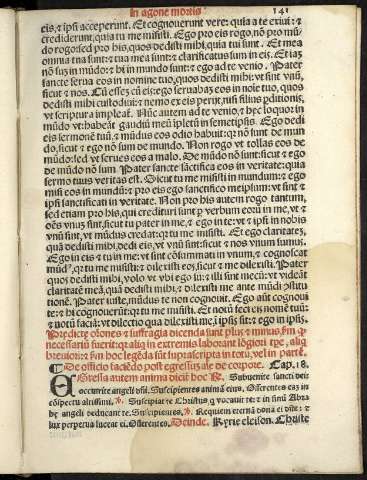 In agone mortis 141
eis, & ipsi acceperunt. Et cognouerunt vere: quia a te exiui: &
crediderunt, quia tu me misisti. Ego pro eis rogo, nō pro mū-
do rogo: sed pro his, quos dedisti mihi, quia tui sunt. Et mea
omnia tua sunt: & tua mea sunt: & clarificatus sum in eis. Et iaz
nō suz in mūdo: & hi in mundo sunt: & ego ad te venio. Pater
sancte serua eos in nomine tuo, quos dedisti mihi: vt sint vnū,
sicut & nos. Cū essez cū eis: ego seruabaz eos in noīe tuo, quos
dedisti mihi custodiui: & nemo ex eis perijt, nisi filius pditionis,
vt scriptura impleat̄. Nūc autem ad te venio, & hec loquor in
mūdo vt habeāt gaudiū meū īpletū in semetipsis. Ego dedi
eis sermonē tuū, & mūdus eos odio habuit: qꝛ nō sunt de mun
do, sicut & ego nō sum de mundo. Non rogo vt tollas eos de
mūdo: sed vt serues eos a malo. De mūdo nō sunt: sicut & ego
de mūdo nō sum. Pater sancte sāctifica eos in veritate: quia
sermo tuus veritas est. Sicut tu me misisti in mundum: & ego
misi eos in mundū: & pro eis ego sanctifico meipsum: vt sint &
ipsi sanctificati in veritate. Non pro his autem rogo tantum,
sed etiam pro his, qui credituri sunt p verbum eorū in me, vt &
oēs vnuz sint, sicut tu pater in me, & ego in te: vt & ipsi in nobis
vnū sint, vt mūdus credat: qꝛ tu me misisti. Et ego claritatez,
quā dedisti mihi, dedi eis, vt vnū sint: sicut & nos vnum sumus.
Ego in eis & tu in me: vt sint cōsummati in vnum, & cognoscat
mūd⁹, qꝛ tu me misisti: & dilexisti eos, sicut & me dilexisti. Pater
quos dedisti mihi, volo vt vbi ego sū: & illi sint mecū: vt videāt
claritatē meā, quā dedisti mihi: qꝛ dilexisti me ante mūdi ɔstitu
tionē. Pater iuste, mūdus te non cognouit. Ego aūt cognoui
te: & hi cognouerūt: qꝛ tu me misisti. Et notū feci eis nomē tuū:
& notū faciā: vt dilectio qua dilexisti me, ī ipsis sit: & ego in ipsis.
Predicte oīones & suffragia dicenda sunt plus & minus, fm qꝫ
necessariū fuerit: qꝛ aliq̄ in extremis laborant lōgiori tpe, aliq̄
breuiori: & fm hoc legēda sūt suprascripta in totū, vel in partē.
¶ De officio faciēdo post egressuz aīe de corpore. Cap. 18.
EGressa autem anima dicit̄ hoc R. Subuenite sancti dei:
occurrite angeli dñi. Suscipientes animā eius. Offerentes eaz in
cōspectu altissimi. ℣. Suscipiat te Christus, q̄ vocauit te: & in sinū Abra
hę angeli deducant te. Suscipientes. ℣. Requiem eternā dona ei dñe: &
lux perpetua luceat ei. Offerentes. Deinde. Kyrie eleison. Christe